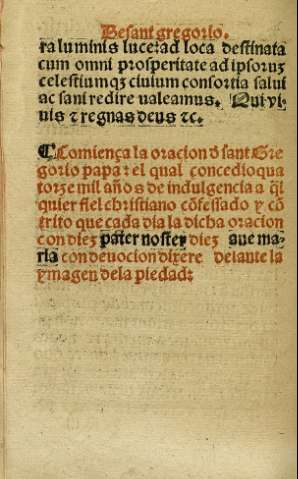 De sant gregorio.
ra luminis luce: ad loca destinata
cum omni prosperitate ad ipsorumꝫ
celestiumqꝫ ciuium consortia salui
ac sani redire valeamus. Qui vi
uis ⁊ regnas deus ⁊c.
¶ Comiença la oracion ď sant Gre
gorio papa: el qual concedio qua
torze mil años de indulgencia a q̄l
quier fiel christiano cōfessado y cō
trito que cada dia la dicha oracion
con diez pater noster diez aue ma
ria con deuocion dixere delante la
ymagen dela piedad: